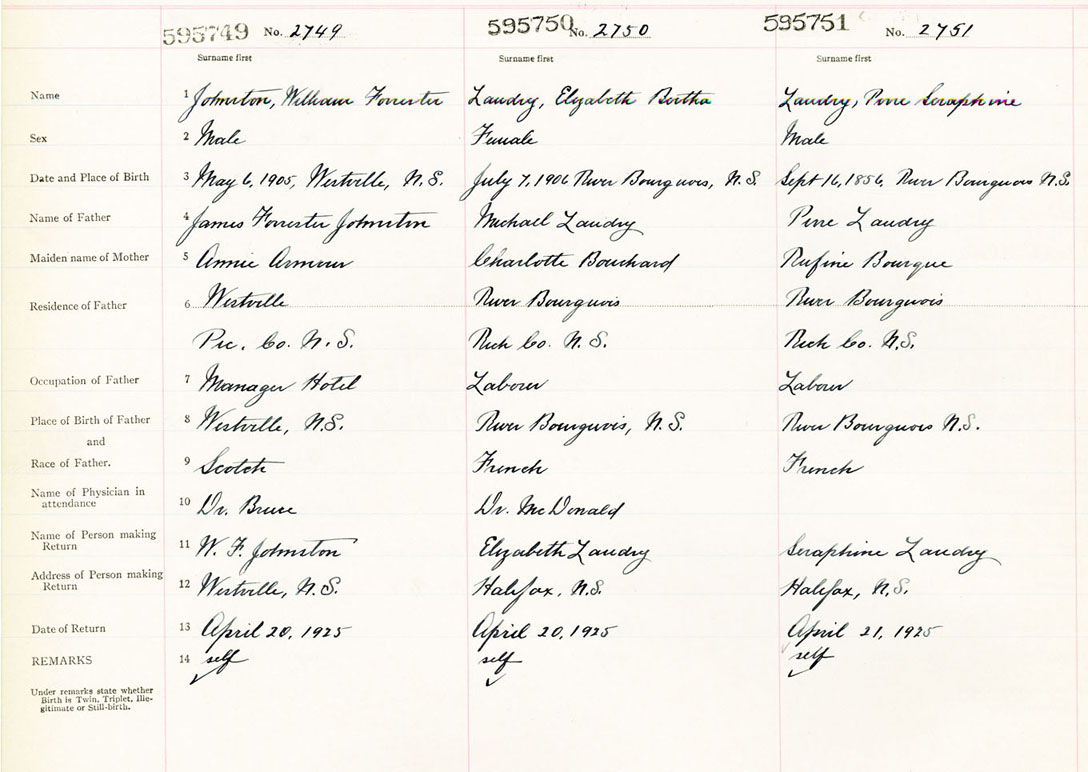 595749 No. 2749 595750 No. 2750 595751 No. 2751
Surname first Surname first Surname first
Name 1 Johnston, William Forrester Landry, Elizabeth Bertha Landry, Pirre Seraphine
Sex 2 Male Female Male
Date and Place of Birth 3 May 6, 1905, Westville, N.S. July 7, 1906 River Bourgeois, N.S. Sept 16, 1856, River Bourgeois N.S.
Name of Father 4 James Forrester Johnston Michael Landry Pirre Landry
Maiden name of Mother 5 Annie Armour Charlotte Bouchard Rufine Bourque
Residence of Father 6 Westville River Bourgeois River Bourgeois
Pic. Co. N.S. Rich Co. N.S. Rich Co. N.S.
Occupation of Father 7 Manager Hotel Labour Labour
Place of Birth of Father 8 Westville, N.S. River Bourgeois, N.S. River Bourgeois N.S.
and
Race of Father. 9 Scotch French French
Name of Physician in
attendance 10 Dr. Bruce Dr. McDonald
Name of Person making
Return 11 W. F. Johnston Elizabeth Landry Seraphine Landry
Address of Person making
Return 12 Westville, N.S. Halifax, N.S. Halifax, N.S.
Date of Return 13 April 20, 1925 April 20, 1925 April 21, 1925
REMARKS 14 self self self
Under remarks state whether
Birth is Twin, Triplet, Ille-
gitimate or Still-birth.